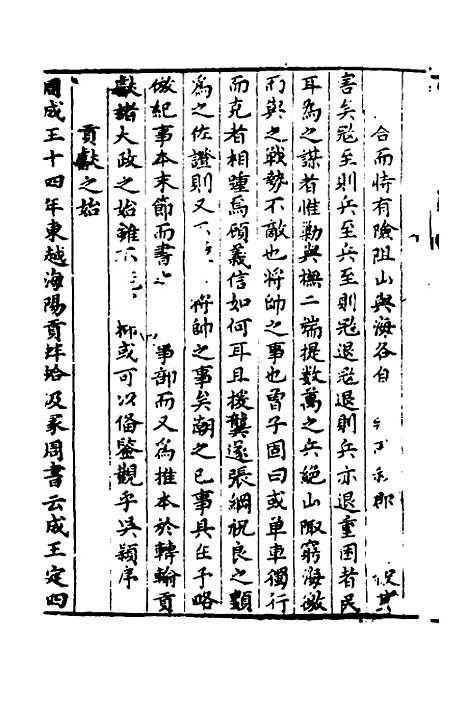 合而恃有險阻山與海各自
害矣冦至則兵至兵至則冦退冦退則兵亦退重困者民
耳為之謀者惟勦與撫二端提數萬之兵絕山陬窮海徼
而與之戰勢不敵也將帥之事也曾子固曰或單車獨行
而克者相踵焉顧義信如何耳且援龔遂張綱祝良之類
為之佐證則又不 將帥之事矣朝之已事具在予略
倣紀事本末節而書之 事部而又為推本於轉輸貢
獻諸大政之始雖不 抑或可以備鑒觀乎吳穎序
貢獻之始
周成王十四年東越海陽貢蚌蛤汲冢周書云成王定四